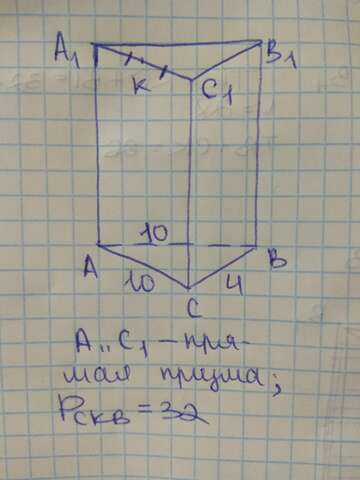 A₁
B₁
K
C₁
10
A
B
10
4
C
A..C₁ – пря-
мая призма;
P_CKB = 32